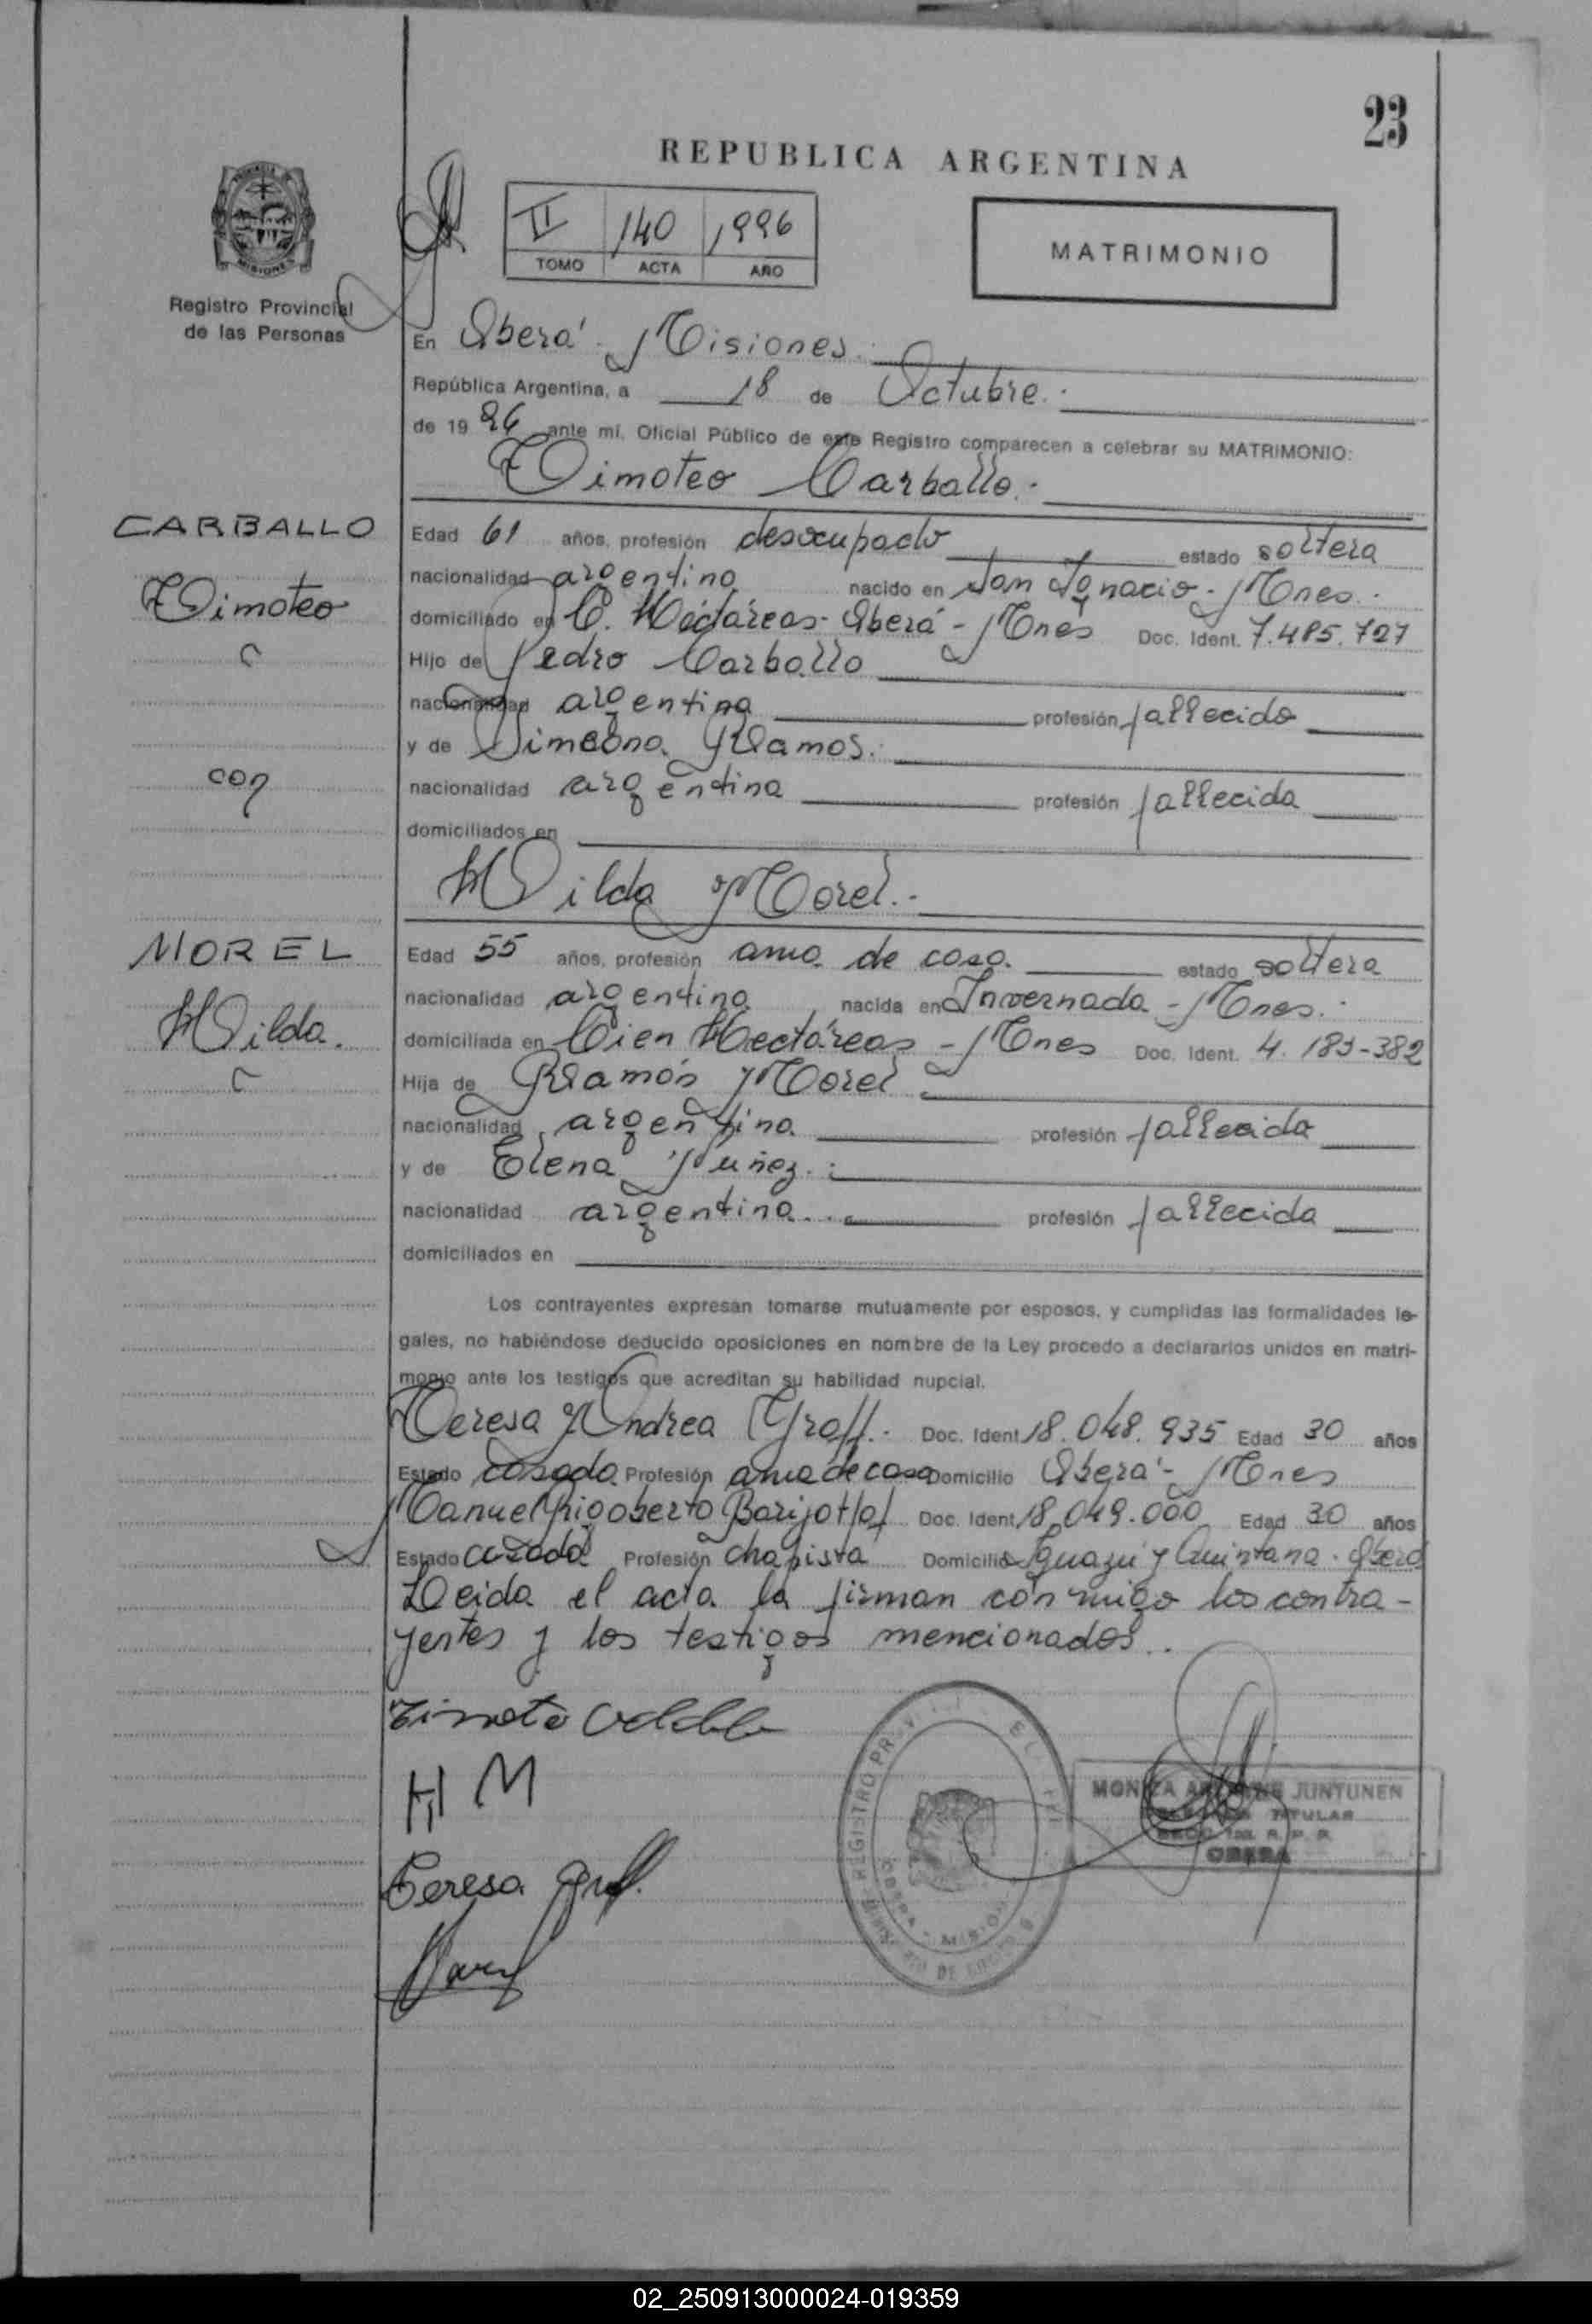 23
REPUBLICA ARGENTINA
II 140 1996
TOMO ACTA AÑO
MATRIMONIO
MISIONES
Registro Provincial
de las Personas
En Oberá - Misiones.
República Argentina, a 18 de Octubre.
de 1996 ante mí, Oficial Público de este Registro comparecen a celebrar su MATRIMONIO:
Timoteo Carballo.
CARBALLO
Timoteo
con
Edad 61 años, profesión desocupado estado soltera
nacionalidad argentina nacido en San Ignacio - Mnes.
domiciliado en C. Hectáreas - Oberá - Mnes Doc. Ident. 7.485.727
Hijo de Pedro Carballo
nacionalidad argentina profesión fallecido
y de Simeona Ramos.
nacionalidad argentina profesión fallecida
domiciliados en
Hilda Morel.
MOREL
Hilda.
Edad 55 años, profesión ama de casa. estado soltera
nacionalidad argentina nacida en Invernada - Mnes.
domiciliada en Cien Hectáreas - Mnes Doc. Ident. 4.183-382
Hija de Ramón Morel
nacionalidad argentina profesión fallecida
y de Elena Nuñez.
nacionalidad argentina profesión fallecida
domiciliados en
Los contrayentes expresan tomarse mutuamente por esposos, y cumplidas las formalidades le-
gales, no habiéndose deducido oposiciones en nombre de la Ley procedo a declararlos unidos en matri-
monio ante los testigos que acreditan su habilidad nupcial.
Teresa Andrea Graff. Doc. Ident 18.048.935 Edad 30 años
Estado casada Profesión ama de casa Domicilio Oberá - Mnes
Manuel Rigoberto Doc. Ident 18.049.000 Edad 30 años
Estado casado Profesión chapista Domicilio Iguazú y Quintana. Oberá
Leida el acta la firman conmigo los contra-
yentes y los testigos mencionados.
H M
Teresa Graff.
REGISTRO
OBERA - MISIONES
JUNTUNEN
TITULAR
OBERA
02_250913000024-019359